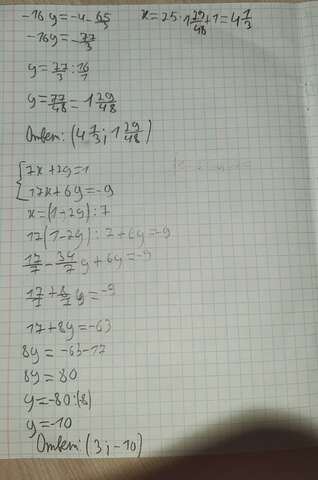 -16y=-4-65/3
x=25·1 29/48+1=4 1/3
-16y=-77/3
y=77/3:16/1
y=77/48=1 29/48
Ответ: (4 1/3; 1 29/48)
{7x+2y=1
17x+6y=-9
x=(1-2y):7
17(1-2y):7+6y=-9
17/7-34/7y+6y=-9
17/7+8/7y=-9
17+8y=-63
8y=-63-17
8y=80
y=-80:(8)
y=-10
Ответ: (3;-10)